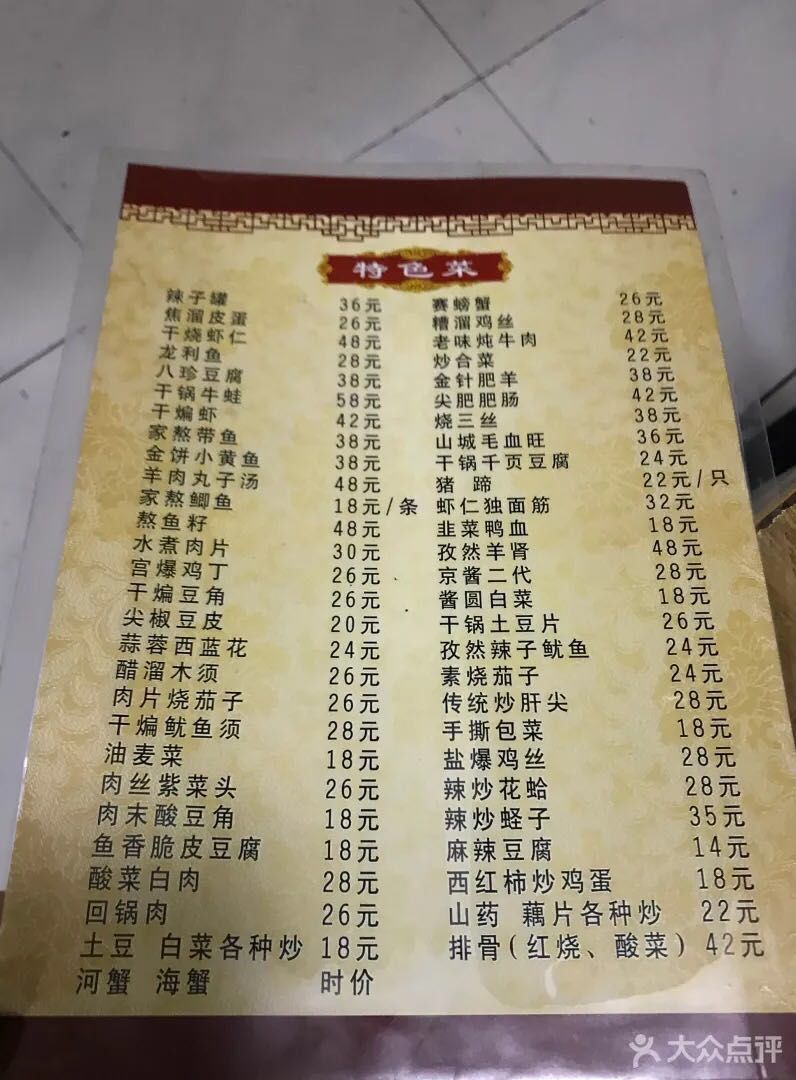 特色菜
辣子罐 36元 赛螃蟹 26元
焦溜皮蛋 26元 糟溜鸡丝 28元
干烧虾仁 48元 老味炖牛肉 42元
龙利鱼 28元 炒合菜 22元
八珍豆腐 38元 金针肥羊 38元
干锅牛蛙 58元 尖肥肥肠 42元
干煸虾 42元 烧三丝 38元
家熬带鱼 38元 山城毛血旺 36元
金饼小黄鱼 38元 干锅千页豆腐 24元
羊肉丸子汤 48元 猪 蹄 22元/只
家熬鲫鱼 18元/条 虾仁独面筋 32元
熬鱼籽 48元 韭菜鸭血 18元
水煮肉片 30元 孜然羊肾 48元
宫爆鸡丁 26元 京酱二代 28元
干煸豆角 26元 酱圆白菜 18元
尖椒豆皮 20元 干锅土豆片 26元
蒜蓉西蓝花 24元 孜然辣子鱿鱼 24元
醋溜木须 26元 素烧茄子 24元
肉片烧茄子 26元 传统炒肝尖 28元
干煸鱿鱼须 28元 手撕包菜 18元
油麦菜 18元 盐爆鸡丝 28元
肉丝紫菜头 26元 辣炒花蛤 28元
肉末酸豆角 18元 辣炒蛏子 35元
鱼香脆皮豆腐 18元 麻辣豆腐 14元
酸菜白肉 28元 西红柿炒鸡蛋 18元
回锅肉 26元 山药 藕片各种炒 22元
土豆 白菜各种炒 18元 排骨(红烧、酸菜) 42元
河蟹 海蟹 时价
大众点评